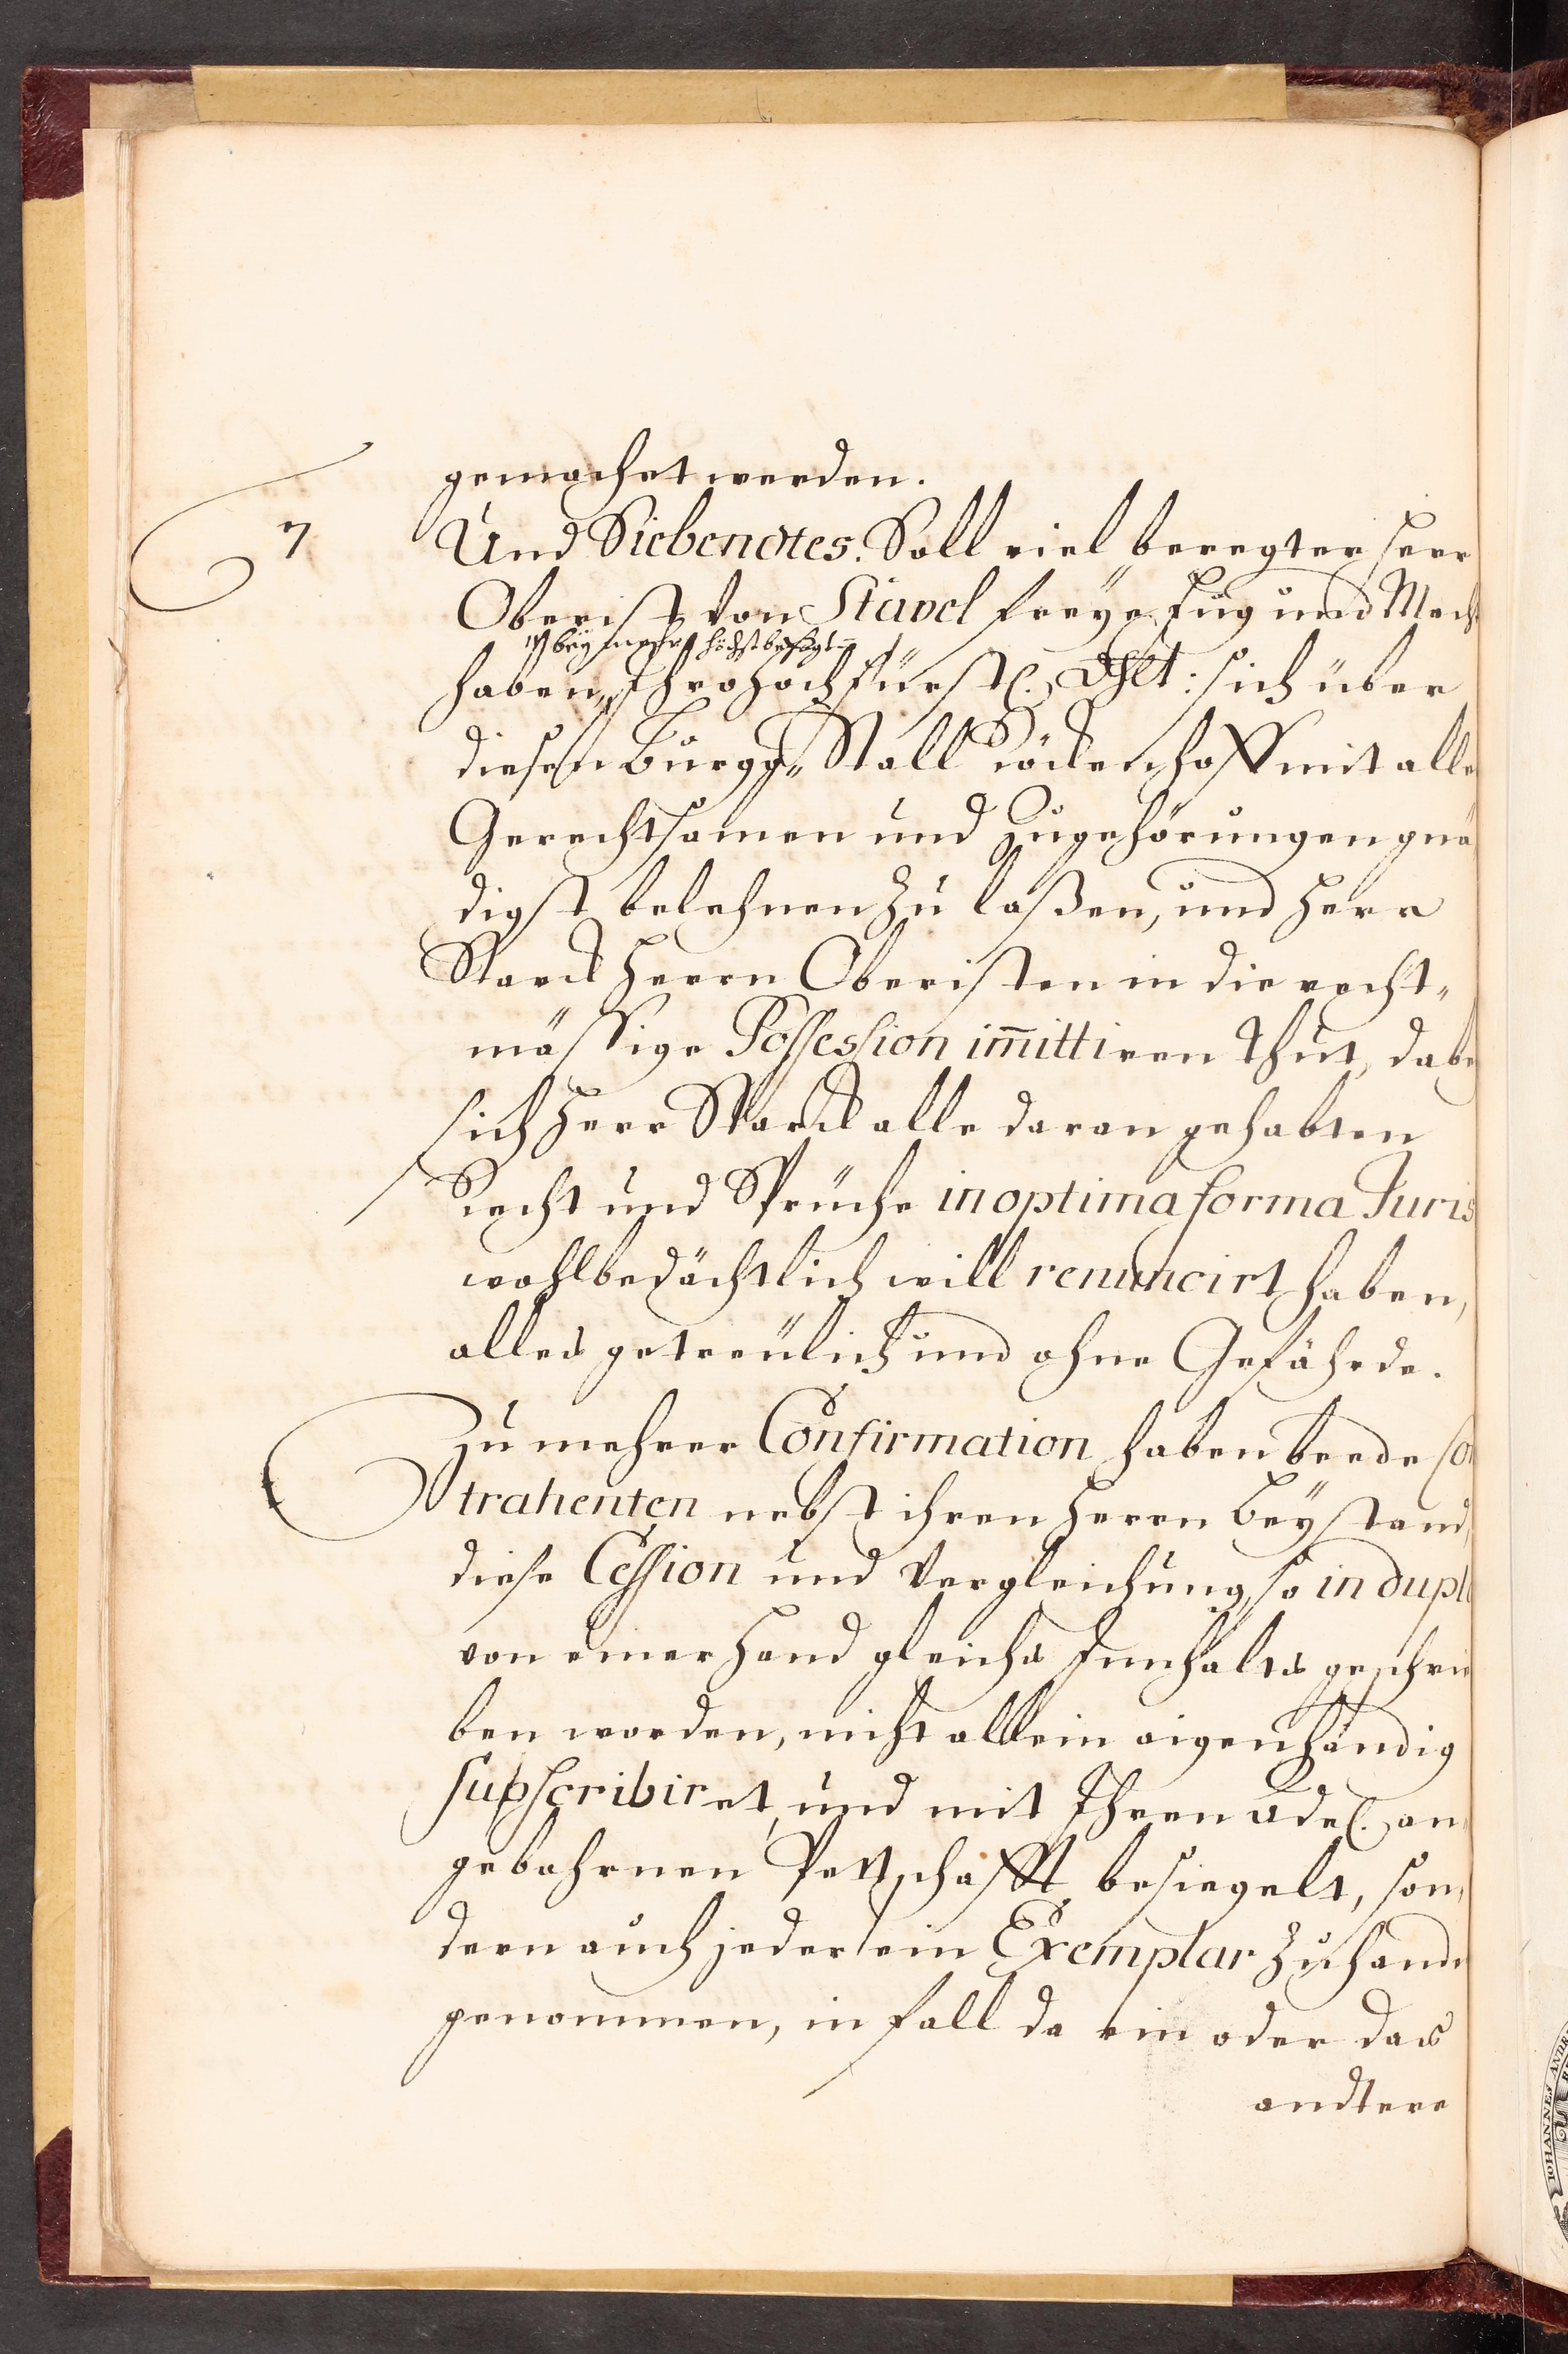 gemachet werden.
7
Und Siebendtes. Soll viel beregter Herr
Oberist von Stavel freye fug und Mach
bey mehr höchstbesagt=
haben, Ihro Hochfürstl. Dhlt: sich über
diesen Burgg„ Stall Röckenhoff mit alle
Gerechtsamen und Zugehörungen gnä
digst belehnen zu laßen, und Herr
Starck Herrn Oberisten in die recht„
mässige Possession im̄ittiren thut, dabe
sich Herr Starck alle daran gehabten
Recht und Sprüche in optima forma Juris
wohlbedächtlich will renuncirt haben,
alles getreülich und ohne Gefährde.
Zu mehrer Confirmation haben beede Co
trahenten nebst ihren Herrn Beystand,
diese Cession und Vergleichung, so in dupl
von einer Hand gleichs Innhalts geschrie
ben worden, nicht allein aigenhändig
supscribiret, und mit Ihren adel. an
gebohrnen Pettschafft besiegelt, son,
dern auch jeder ein Exemplar zuhande
genommen, in fall da ein oder das
andtere
JOHANNES ANDR